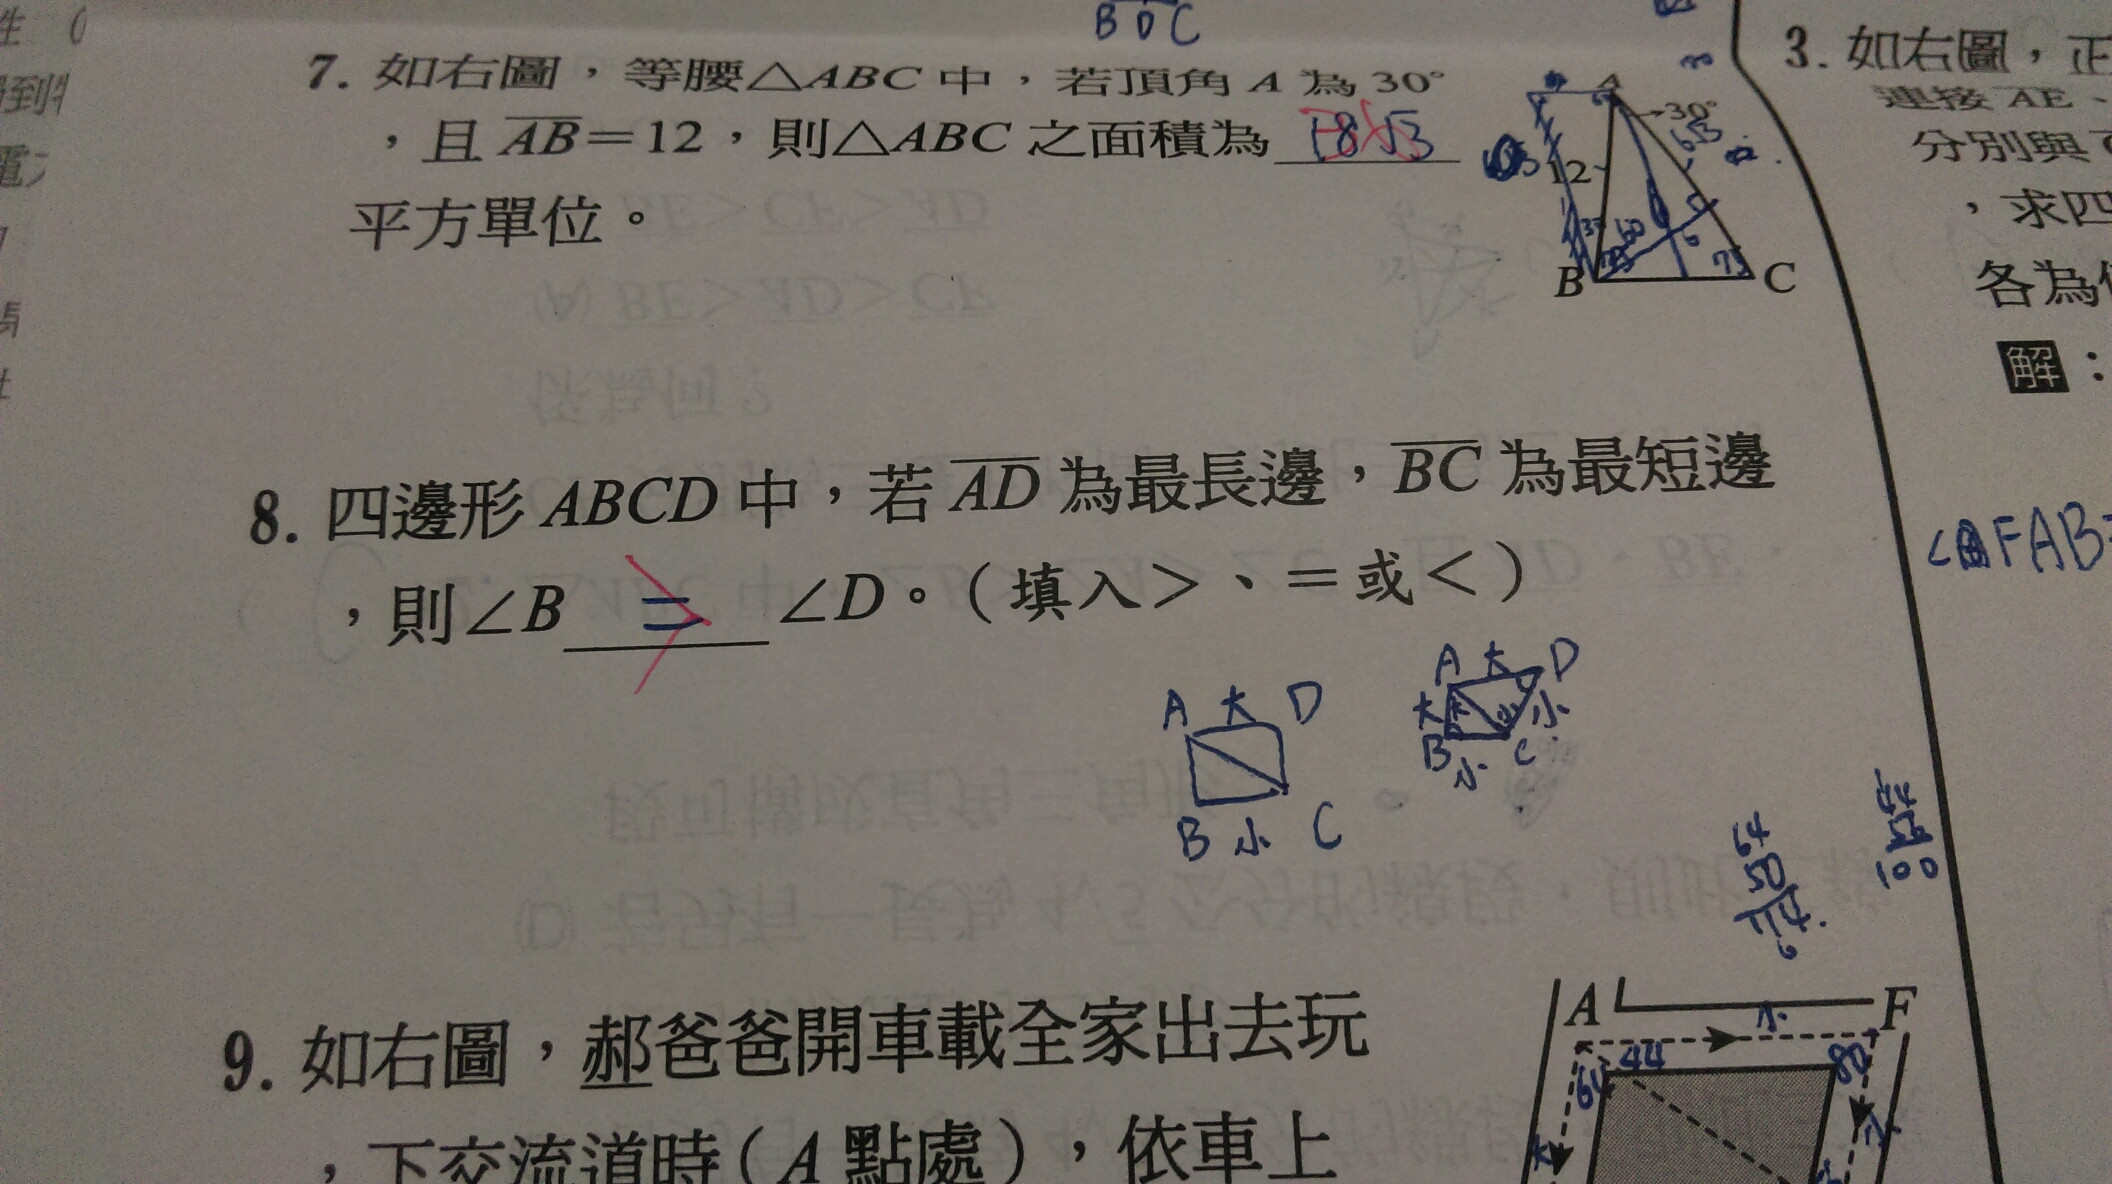 B D C
7. 如右圖，等腰△ABC 中，若頂角 A 為 30°
，且 AB=12，則△ABC 之面積為 18√3
平方單位。
A
30°
6√3
12
60
75
B
C
8. 四邊形 ABCD 中，若 AD 為最長邊，BC 為最短邊
，則∠B = > ∠D。（填入>、=或<）
A 大 D
B 小 C
A 大 D
大 小
B 小 C
64
50
114
6
100
9. 如右圖，郝爸爸開車載全家出去玩
，下交流道時（A 點處），依車上
A F
64 44 80
3. 如右圖，正
連接 AE、
分別與
，求四
各為
解：
∠FAB=